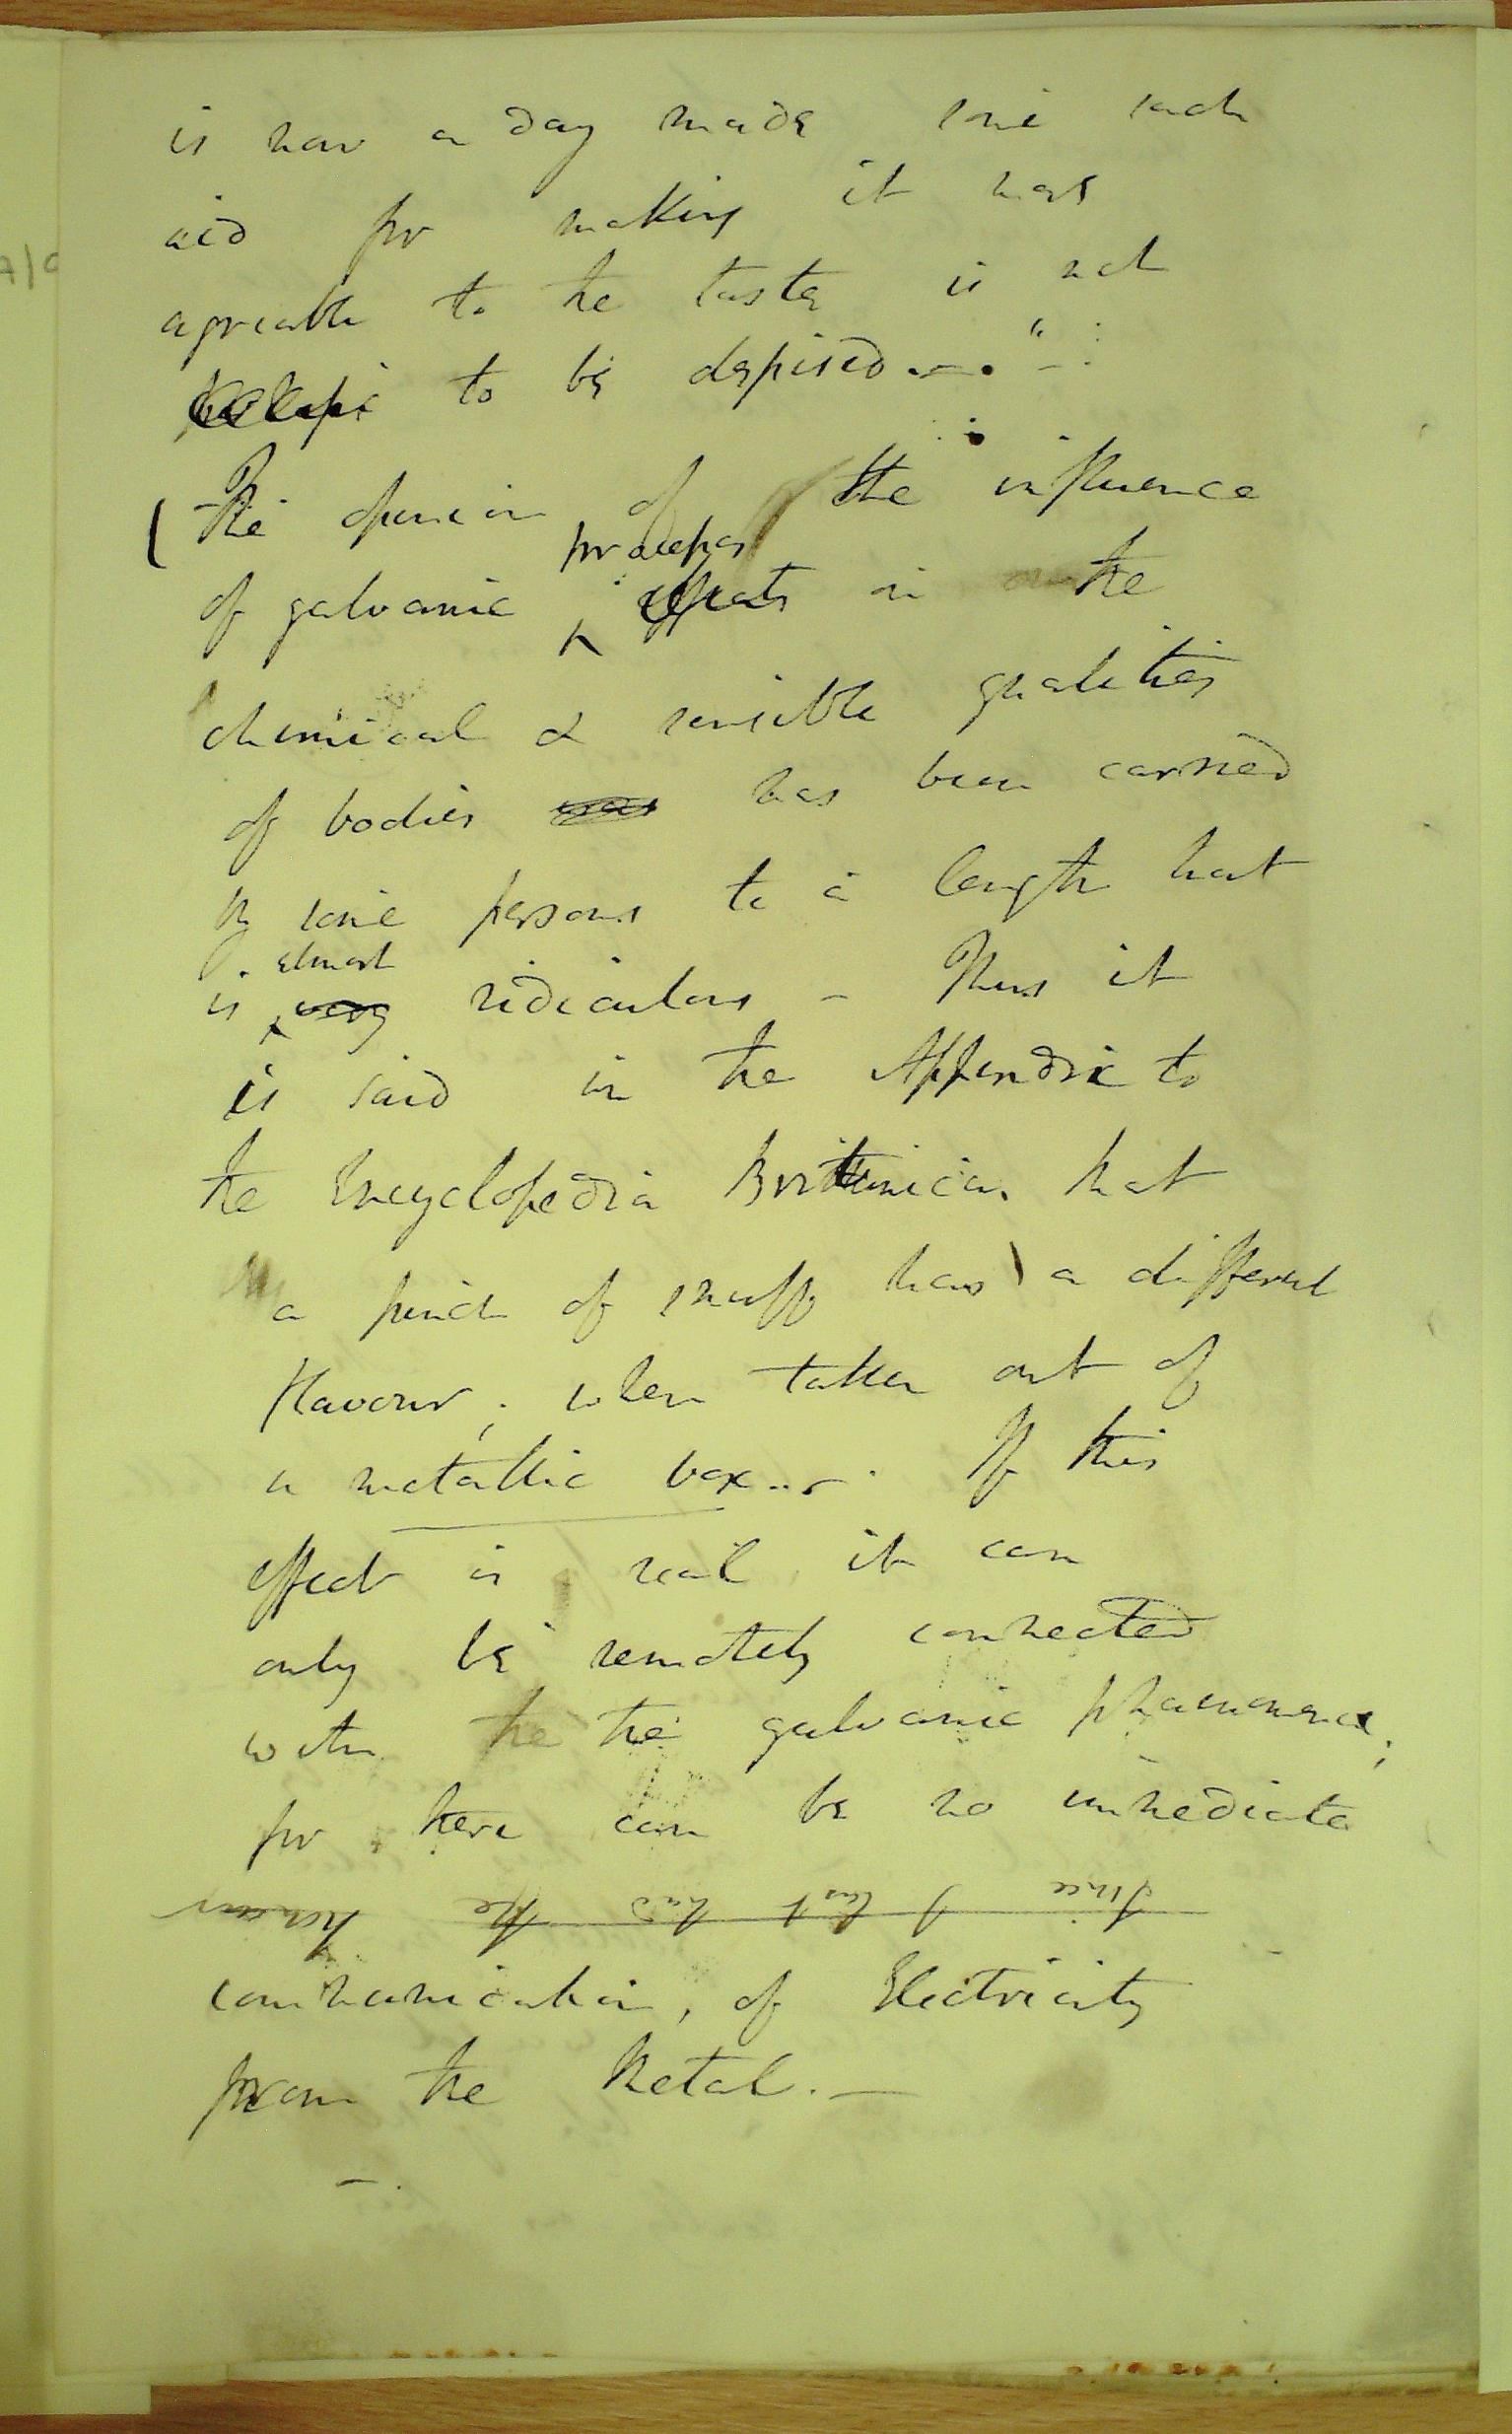 is now a day made some such
aid for making it more
agreable to the taste is not
to be despised. —. " —
( The opinion of the influence
processes
of galvanic effects on the
chemical & sensible qualities
of bodies was has been carried
by some persons to a length that
almost
is very ridiculous – Thus it
is said in the Appendix to
the Encyclopedia Brittanica, that
a pinch of snuff has a different
flavour, when taken out of
a metallic box. If this
effect is real it can
only be remotely connected
with the the galvanic phaenomena;
for there can be no immediate
Since I last had the honour
communication, of Electricity
from the Metal. —